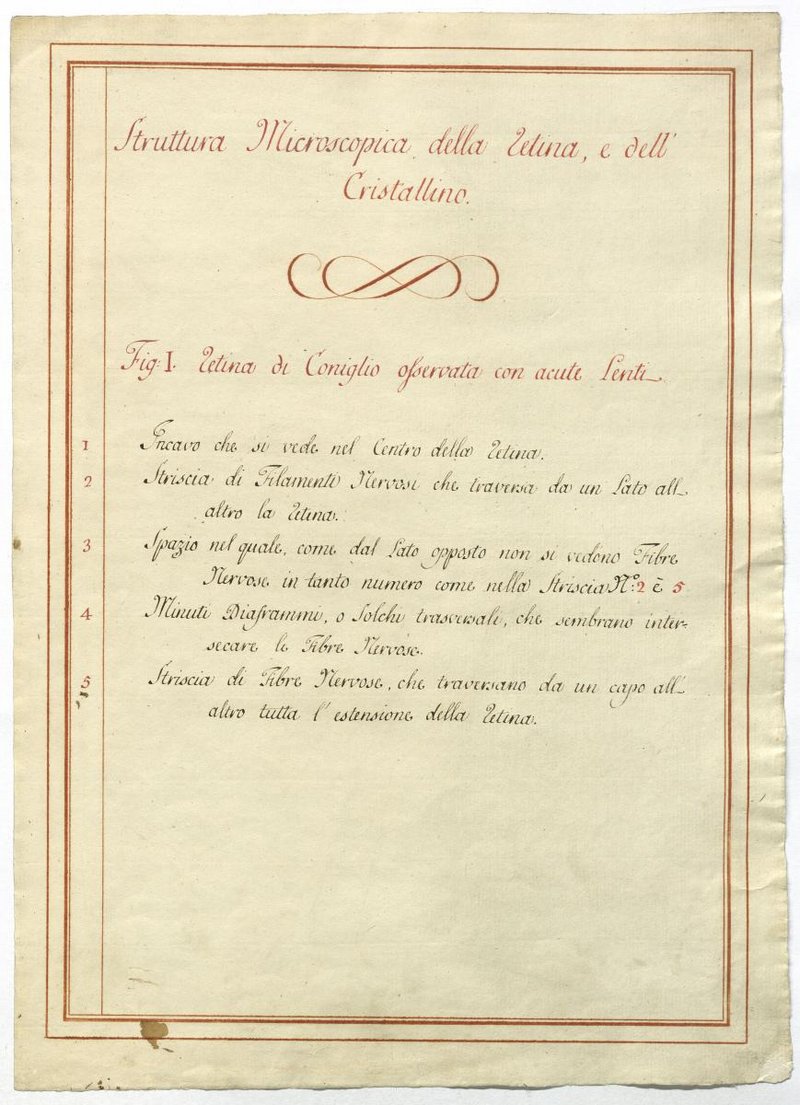 Struttura Microscopica della Retina, e dell'
Cristallino.
Fig: I. Retina di Coniglio osservata con acute Lenti
1 Incavo che si vede nel Centro della Retina.
2 Striscia di Filamenti Nervosi che traversa da un Lato all'
altro la Retina.
3 Spazio nel quale, come dal Lato opposto non si vedono Fibre
Nervose in tanto numero come nella Striscia Nº: 2 è 5
4 Minuti Diaframmi, o Solchi trasversali, che sembrano inter=
secare le Fibre Nervose.
5 Striscia di Fibre Nervose, che traversano da un capo all'
altro tutta l'estensione della Retina.